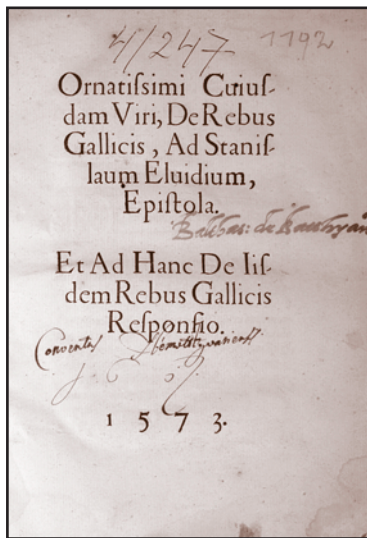 4/247 1192
Ornatiſsimi Cuiuſ-
dam Viri, De Rebus
Gallicis, Ad Staniſ-
laum Eluidium,
Epiſtola.
Et Ad Hanc De Iiſ-
dem Rebus Gallicis
Reſponſio.
Conventus
1573.